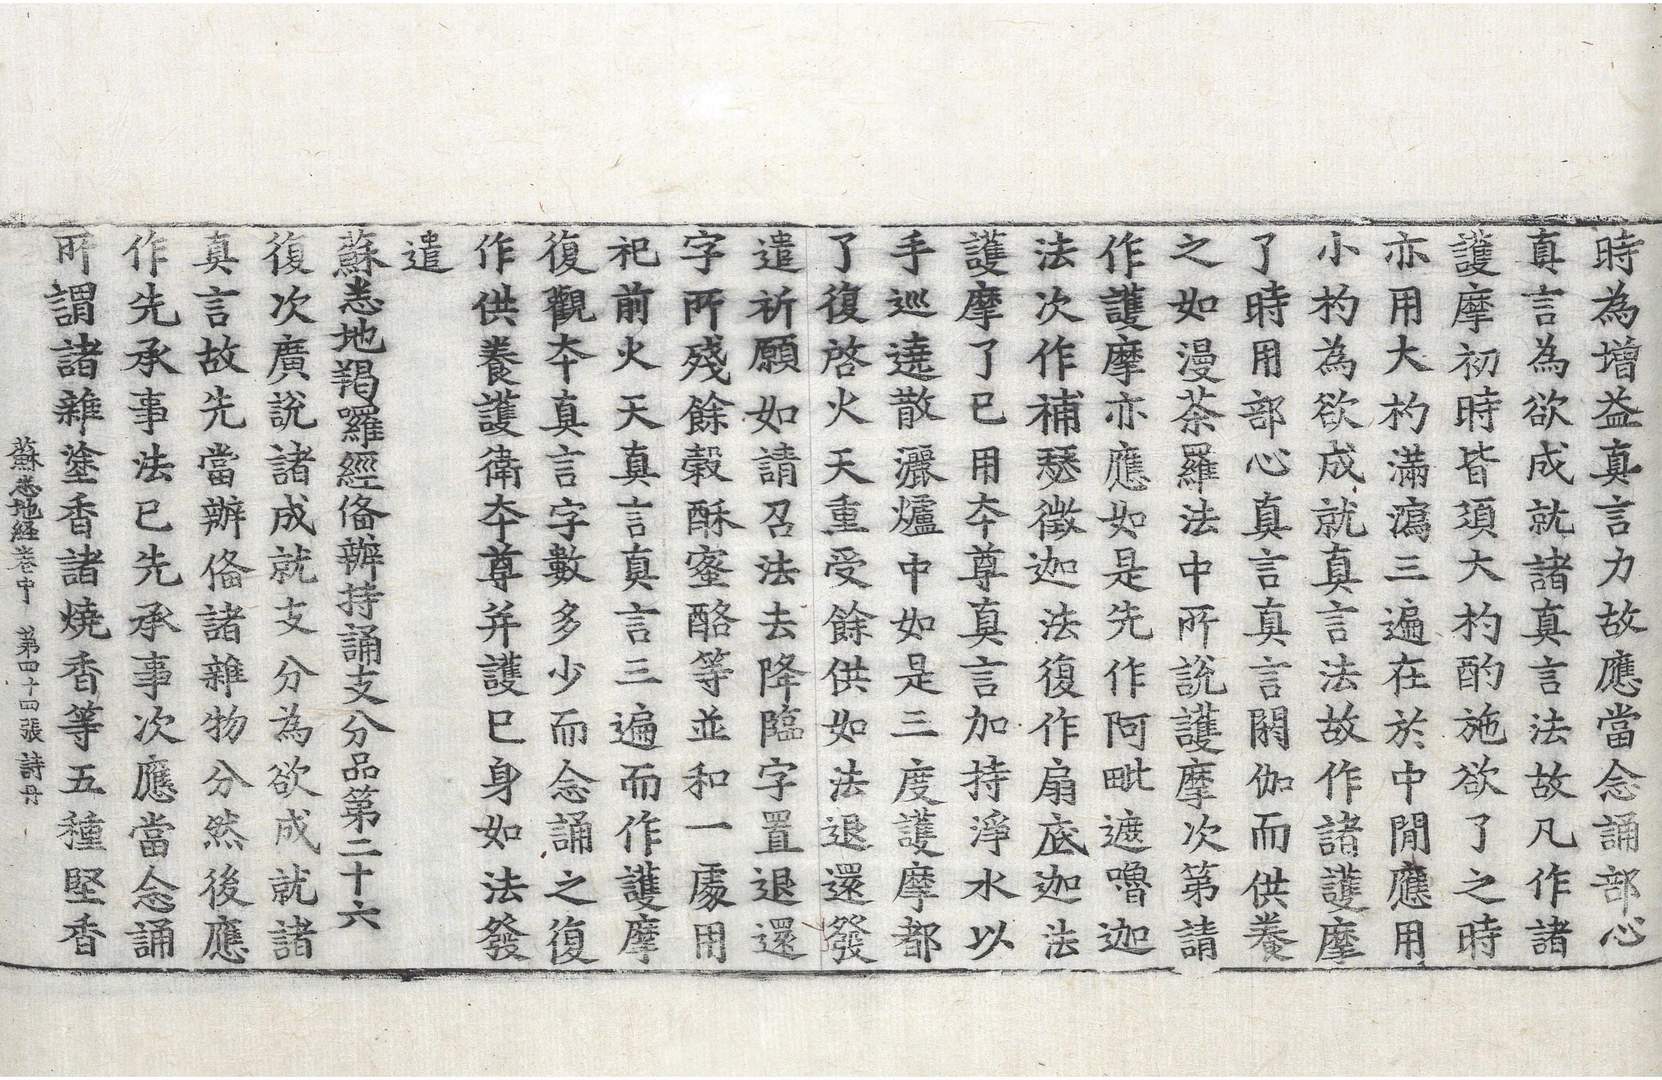 時為增益真言力故應當念誦部心
真言為欲成就諸真言法故凡作諸
護摩初時皆須大杓酌施欲了之時
亦用大杓滿瀉三遍在於中閒應用
小杓為欲成就真言法故作諸護摩
了時用部心真言真言閼伽而供養
之如漫荼羅法中所說護摩次第請
作護摩亦應如是先作阿毗遮嚕迦
法次作補瑟徵迦法復作扇底迦法
護摩了已用本尊真言加持淨水以
手巡遶散灑爐中如是三度護摩都
了復啓火天重受餘供如法退還發
遣祈願如請召法去降臨字置退還
字所殘餘穀酥蜜酪等並和一處用
祀前火天真言真言三遍而作護摩
復觀本真言字數多少而念誦之復
作供養護衛本尊并護已身如法發
遣
蘇悉地羯囉經俻辦持誦支分品第二十六
復次廣說諸成就支分為欲成就諸
真言故先當辦俻諸雜物分然後應
作先承事法已先承事次應當念誦
所謂諸雜塗香諸燒香等五種堅香
蘇悉地經卷中 第四十四張 詩 丹